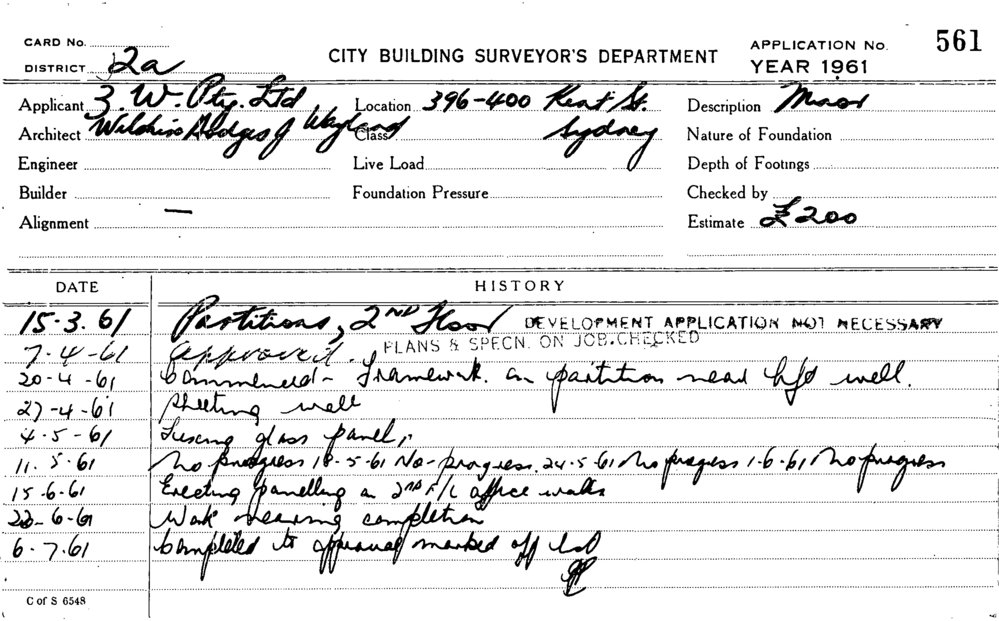 CARD No.
DISTRICT 2a
CITY BUILDING SURVEYOR'S DEPARTMENT
APPLICATION No. 561
YEAR 1961
Applicant 3. W. Pty. Ltd
Location 396-400 Kent St. Sydney
Description Minor
Architect Hodges & Wayland
Class
Nature of Foundation
Engineer
Live Load
Depth of Footings
Builder
Foundation Pressure
Checked by
Alignment —
Estimate £200
DATE HISTORY
15-3.61 Partitions, 2ND Floor DEVELOPMENT APPLICATION NOT NECESSARY
7-4-61 Approved. PLANS & SPECN. ON JOB. CHECKED
20-4-61 Commenced - Framework on partition near well.
27-4-61 Sheeting well
4-5-61 glass panels
11.5.61 No progress 18-5-61 No-progress. 24.5.61 No progress 1-6-61 No progress
15-6-61 Erecting panelling on 2ND F/L office walls
22-6-61 Work nearing completion
6-7.61 Completed to approval marked off
C of S 6548